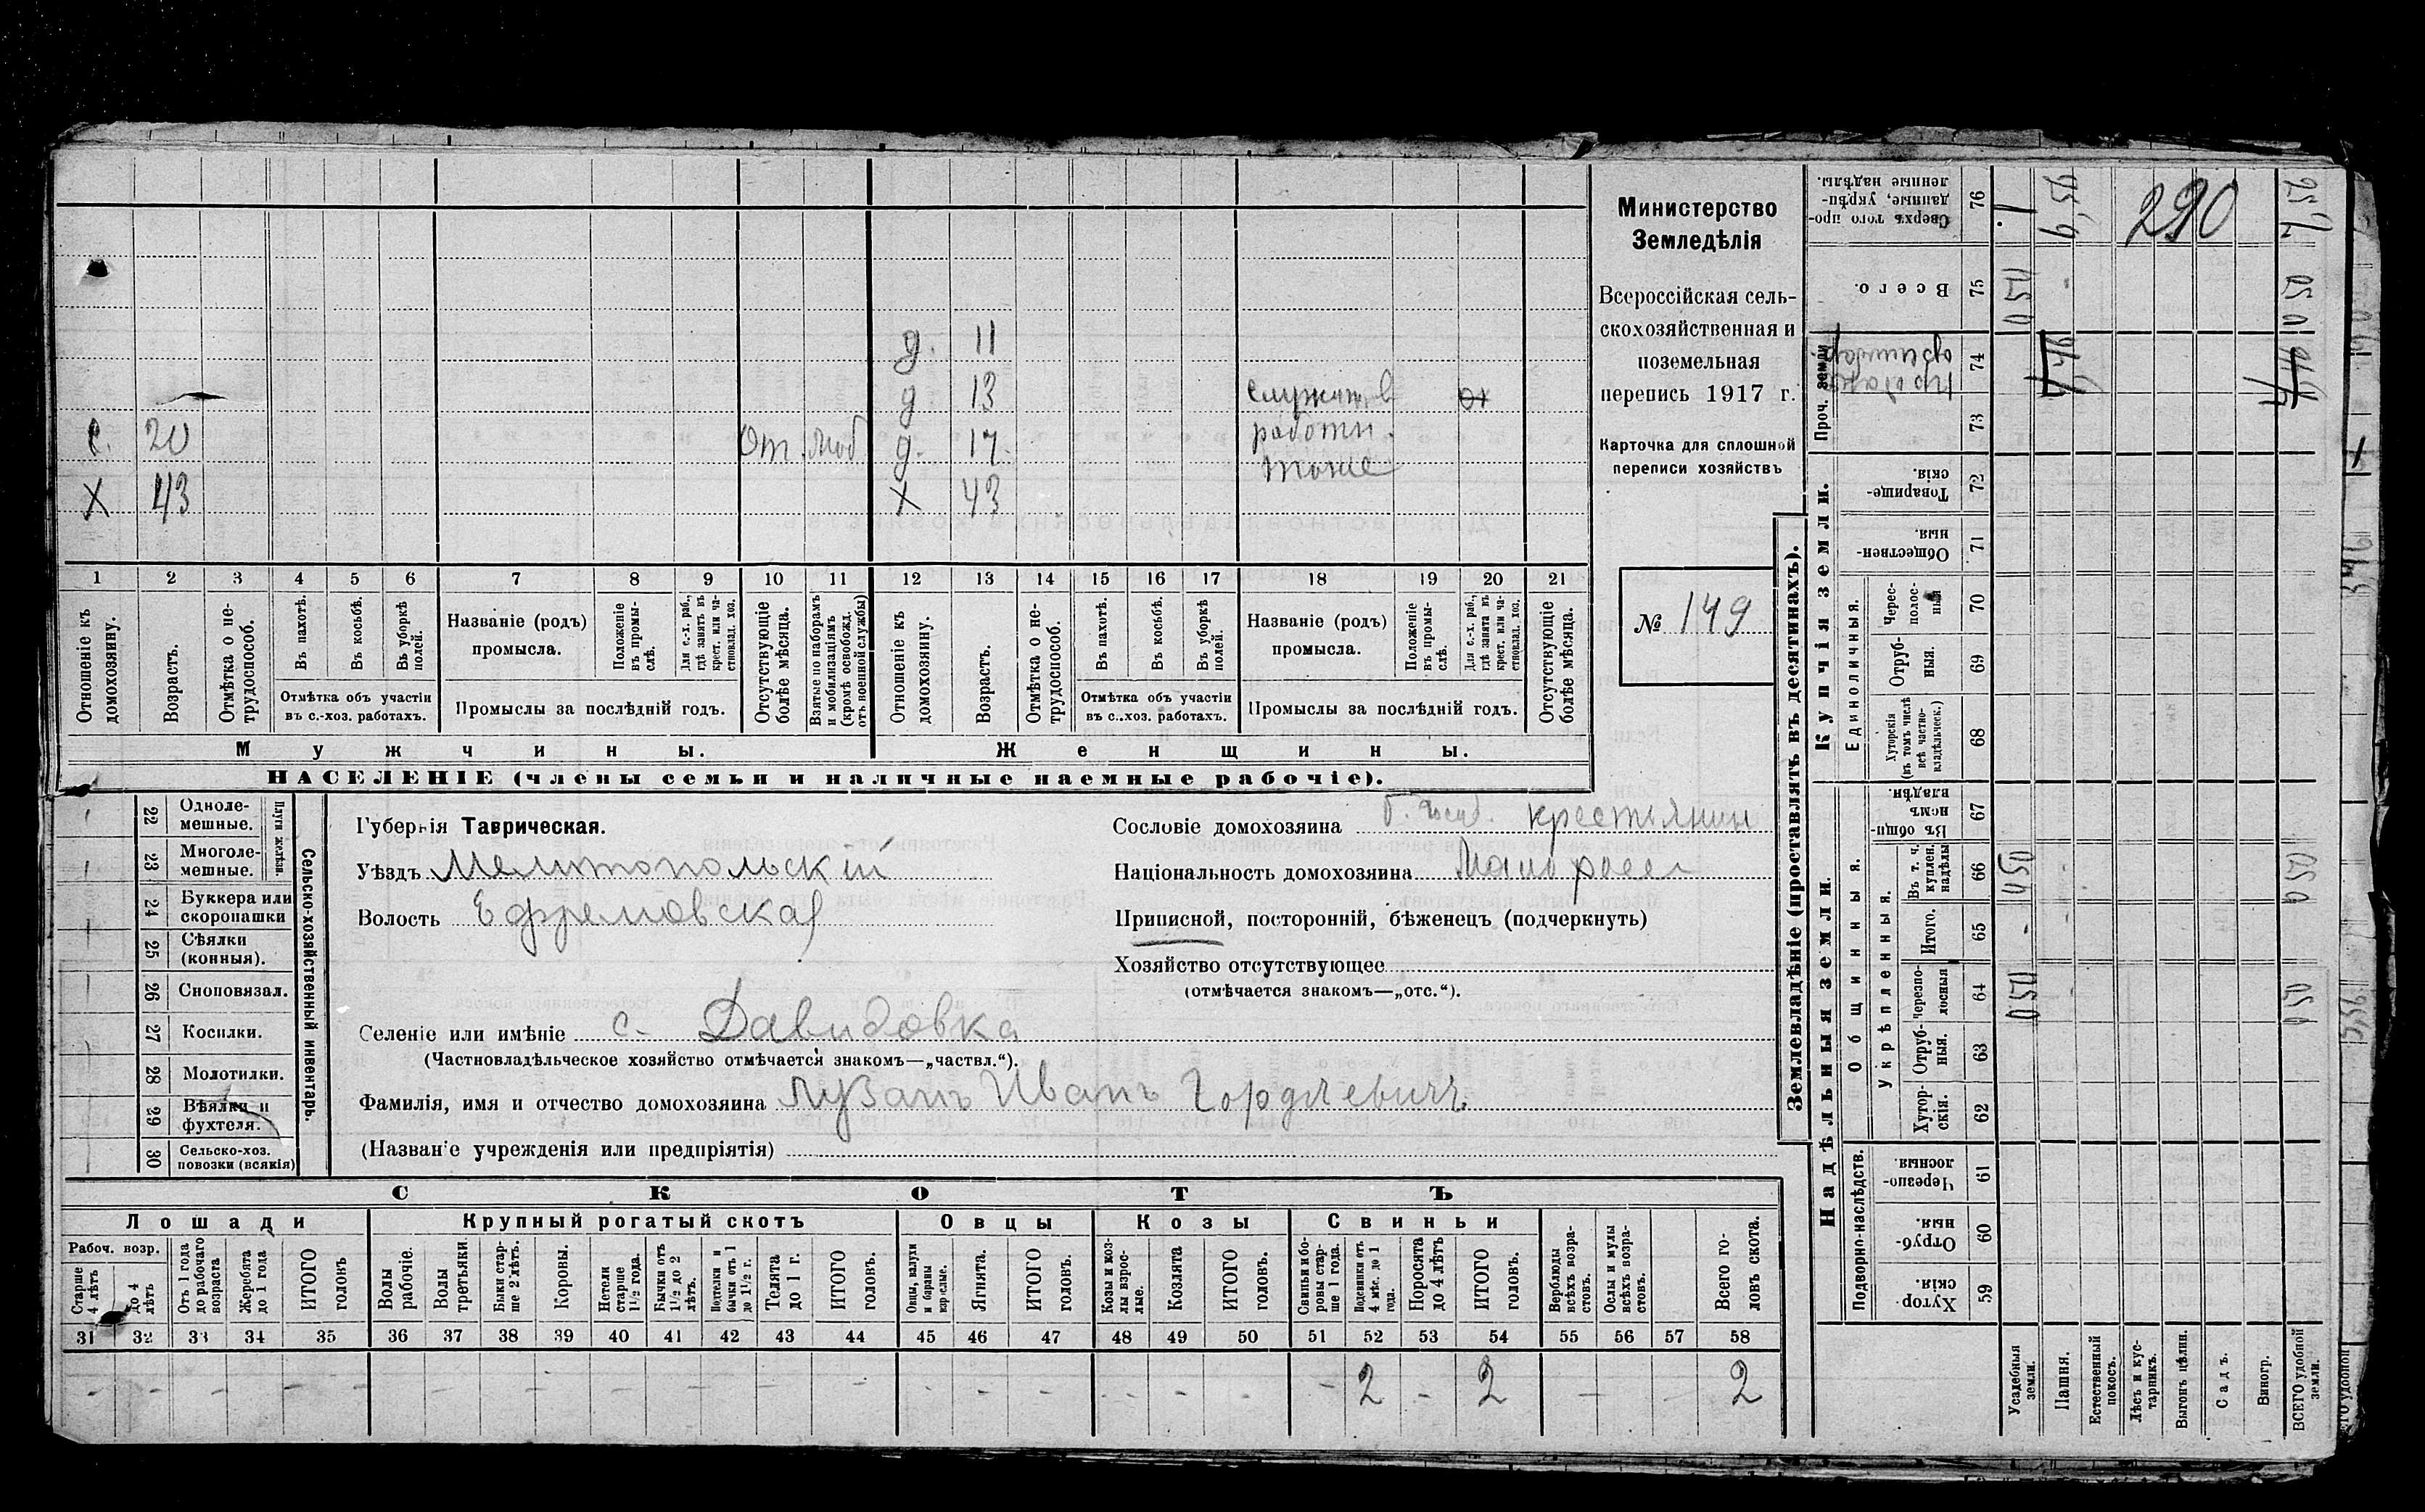 Министерство
Земледѣлія
Всероссійская сель-
скохозяйственная и
поземельная
перепись 1917 г.
Карточка для сплошной
переписи хозяйствъ
№ 149
д. 11
д 13 служит в
с. 20 от. моб д. 17. работн.
тоже
х 43 х 43
1 2 3 4 5 6 7 8 9 10 11 12 13 14 15 16 17 18 19 20 21
Отношеніе къ домохозяину.
Возрастъ.
Отмѣтка о не-трудоспособ.
Въ пахотѣ.
Въ косьбѣ.
Въ уборкѣ полей.
Отмѣтка объ участіи
въ с.-хоз. работахъ.
Названіе (родъ)
промысла.
Положеніе въ промы-слѣ.
Для с.-х. раб., гдѣ занятъ въ крест. или ча-стновлад. хоз.
Промыслы за послѣдній годъ.
Отсутствующіе болѣе мѣсяца.
Взятые по наборамъ и мобилизаціямъ (кромѣ освобожд. отъ военной службы)
Отношеніе къ домохозяину.
Возрастъ.
Отмѣтка о не-трудоспособ.
Въ пахотѣ.
Въ косьбѣ.
Въ уборкѣ полей.
Отмѣтка объ участіи
въ с.-хоз. работахъ.
Названіе (родъ)
промысла.
Положеніе въ промы-слѣ.
Для с.-х. раб., гдѣ занята въ крест. или ча-стновлад. хоз.
Промыслы за послѣдній годъ.
Отсутствующіе болѣе мѣсяца.
Мужчины. Женщины.
НАСЕЛЕНІЕ (члены семьи и наличные наемные рабочіе).
Сельско-хозяйственный инвентарь.
Плуги желѣзн.
22 Одноле-мешные.
23 Многоле-мешные.
24 Буккера или скоропашки
25 Сѣялки (конныя).
26 Сноповязал.
27 Косилки.
28 Молотилки.
29 Вѣялки и фухтеля.
30 Сельско-хоз. повозки (всякія)
Губернія Таврическая.
Уѣздъ Мелитопольскій
Волость Ефремовская
Селеніе или имѣніе с. Давидовка
(Частновладѣльческое хозяйство отмѣчается знакомъ—„частвл.“).
Фамилія, имя и отчество домохозяина Лузанъ Иванъ Гордѣевичъ
(Названіе учрежденія или предпріятія)
Сословіе домохозяина б. госуд. крестьянин
Національность домохозяина Малоросс
Приписной, посторонній, бѣженецъ (подчеркнуть)
Хозяйство отсутствующее
(отмѣчается знакомъ—„отс.“).
СКОТЪ
Лошади Крупный рогатый скотъ Овцы Козы Свиньи
Рабоч. возр.
Старше 4 лѣтъ
до 4 лѣтъ
Отъ 1 года до рабочаго возраста
Жеребята до 1 года
ИТОГО головъ
Волы рабочіе.
Волы третьяки.
Быки стар-ше 2 лѣтъ.
Коровы.
Нетели старше 1½ года.
Бычки отъ 1½ до 2 лѣтъ.
Подтелки и бычки отъ 1 до 1½ г.
Телята до 1 г.
ИТОГО головъ.
Овцы, валухи и бараны взрослые.
Ягнята.
ИТОГО головъ.
Козы и коз-лы взрос-лые.
Козлята
ИТОГО головъ.
Свиньи и бо-ровы стар-ше 1 года.
Подсвинки отъ 4 мѣс. до 1 года.
Поросята до 4 лѣтъ
ИТОГО головъ.
Верблюды всѣхъ возра-стовъ.
Ослы и мулы всѣхъ возра-стовъ.
Всего го-ловъ скота.
31 32 33 34 35 36 37 38 39 40 41 42 43 44 45 46 47 48 49 50 51 52 53 54 55 56 57 58
- - - - - - - - - - - - - - - - - - - - - 2 - 2 - - 2
Землевладѣніе (проставлять въ десятинахъ).
Надѣльныя земли. Купчія земли. Проч. земли
Сверхъ того про-данные, укрѣп-ленные надѣлы. 76
Всего. 75
74
73
Товарище-скія. 72
Обществен-ныя. 71
Единоличныя.
Черес-полос-ныя 70
Отруб-ныя. 69
Хуторскія (въ томъ числѣ всѣ частно-владѣльческ.) 68
Общинныя.
Въ общи-нномъ владѣн. 67
Укрѣпленныя.
Въ т. ч. куплен. надѣлы 66
Итого. 65
Черезпо-лосныя 64
Отруб-ныя. 63
Хутор-скія. 62
Подворно-наслѣдств.
Черезпо-лосныя. 61
Отруб-ныя. 60
Хутор-скія. 59
Усадебныя земли.
Пашня.
Естественный покосъ.
Лѣсъ и кус-тарникъ.
Выгонъ цѣлин.
Садъ.
Виногр.
ВСЕГО удобной земли.
290